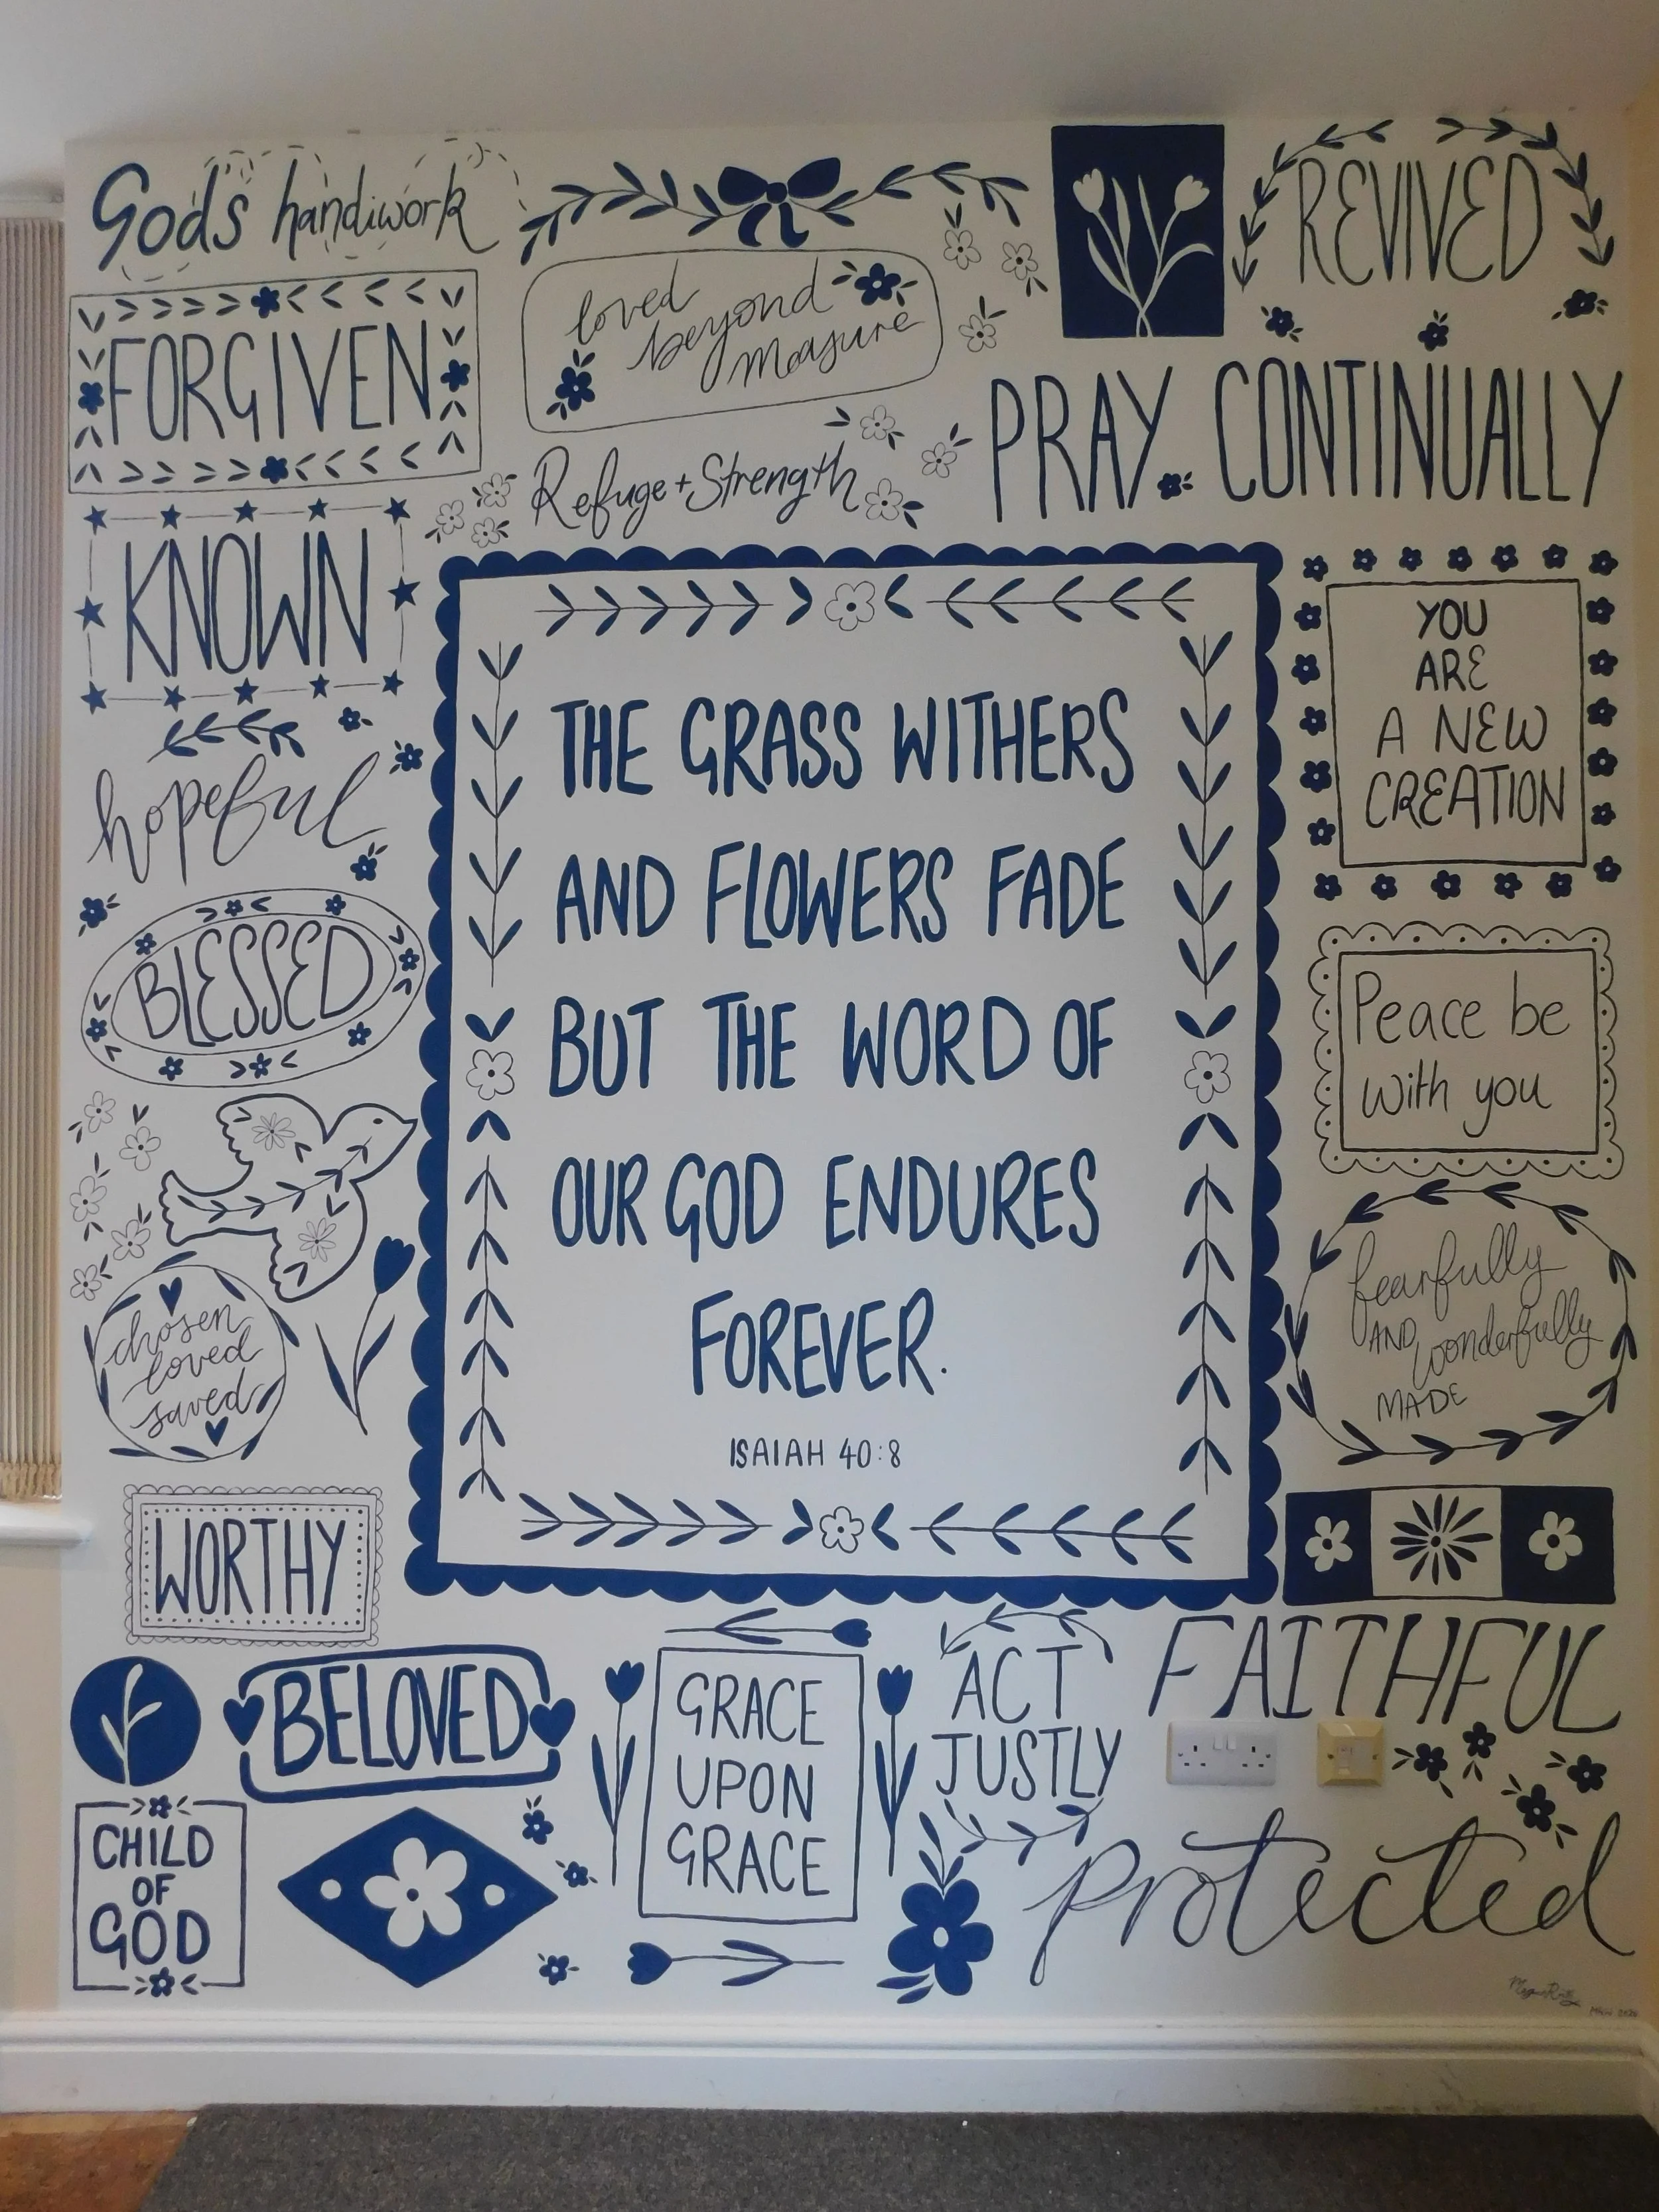 God's handiwork
REVIVED
FORGIVEN
loved
beyond
measure
Refuge + Strength
PRAY CONTINUALLY
KNOWN
hopeful
BLESSED
chosen
loved
saved
WORTHY
THE GRASS WITHERS
AND FLOWERS FADE
BUT THE WORD OF
OUR GOD ENDURES
FOREVER.
ISAIAH 40:8
YOU
ARE
A NEW
CREATION
Peace be
with you
fearfully
AND wonderfully
MADE
BELOVED
CHILD
OF
GOD
GRACE
UPON
GRACE
ACT
JUSTLY
FAITHFUL
protected